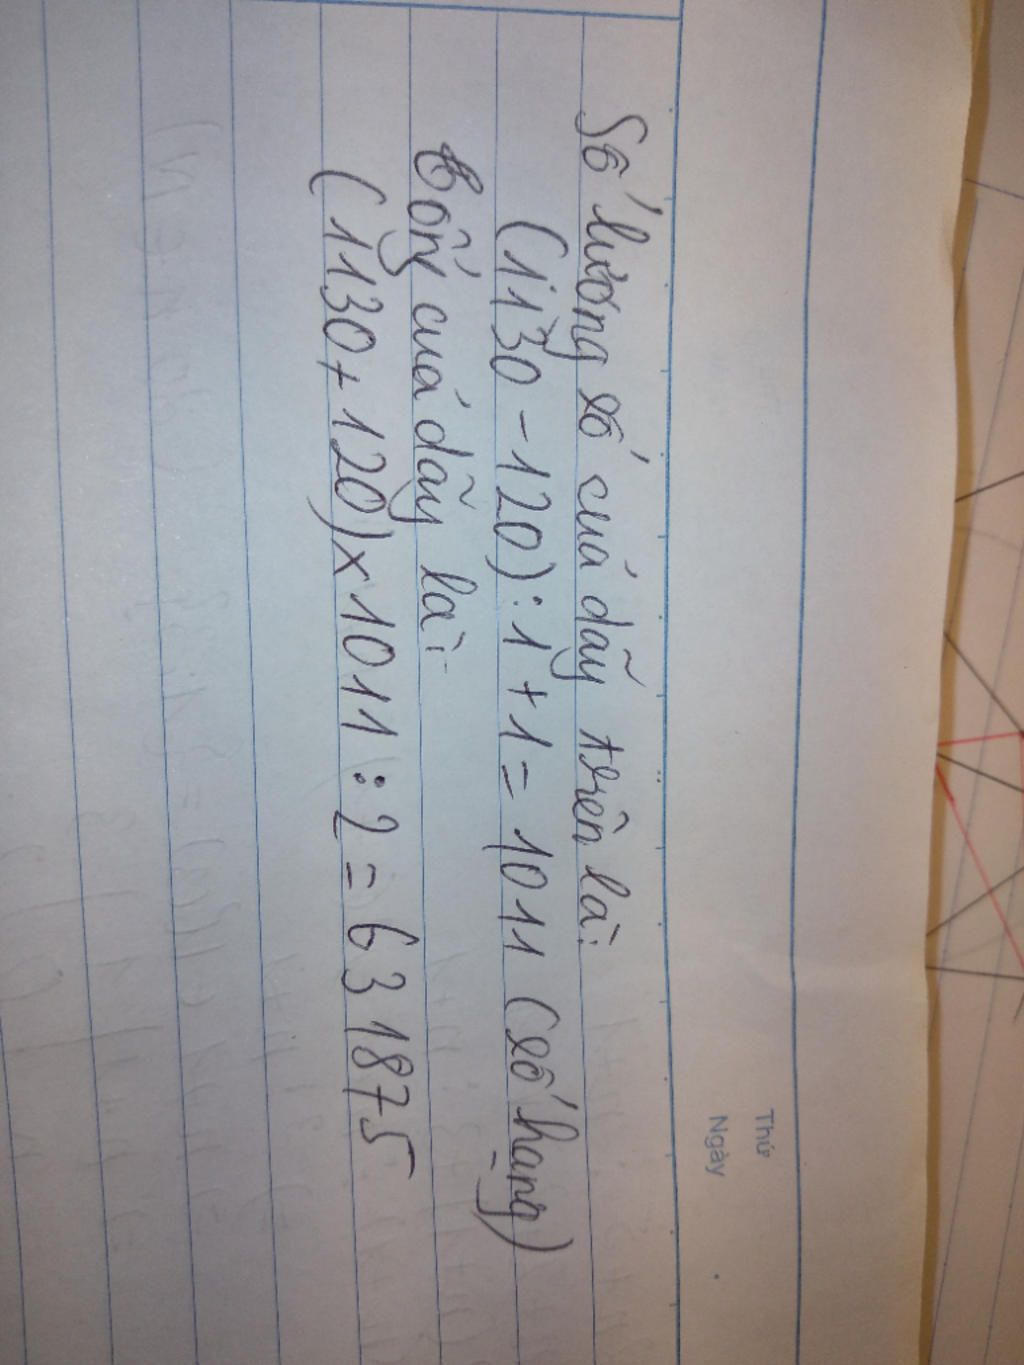 Thứ
Ngày
Số lượng số của dãy trên là:
(1130 - 120) : 1 + 1 = 1011 (số hạng)
Tổng của dãy là:
(1130 + 120) x 1011 : 2 = 631875